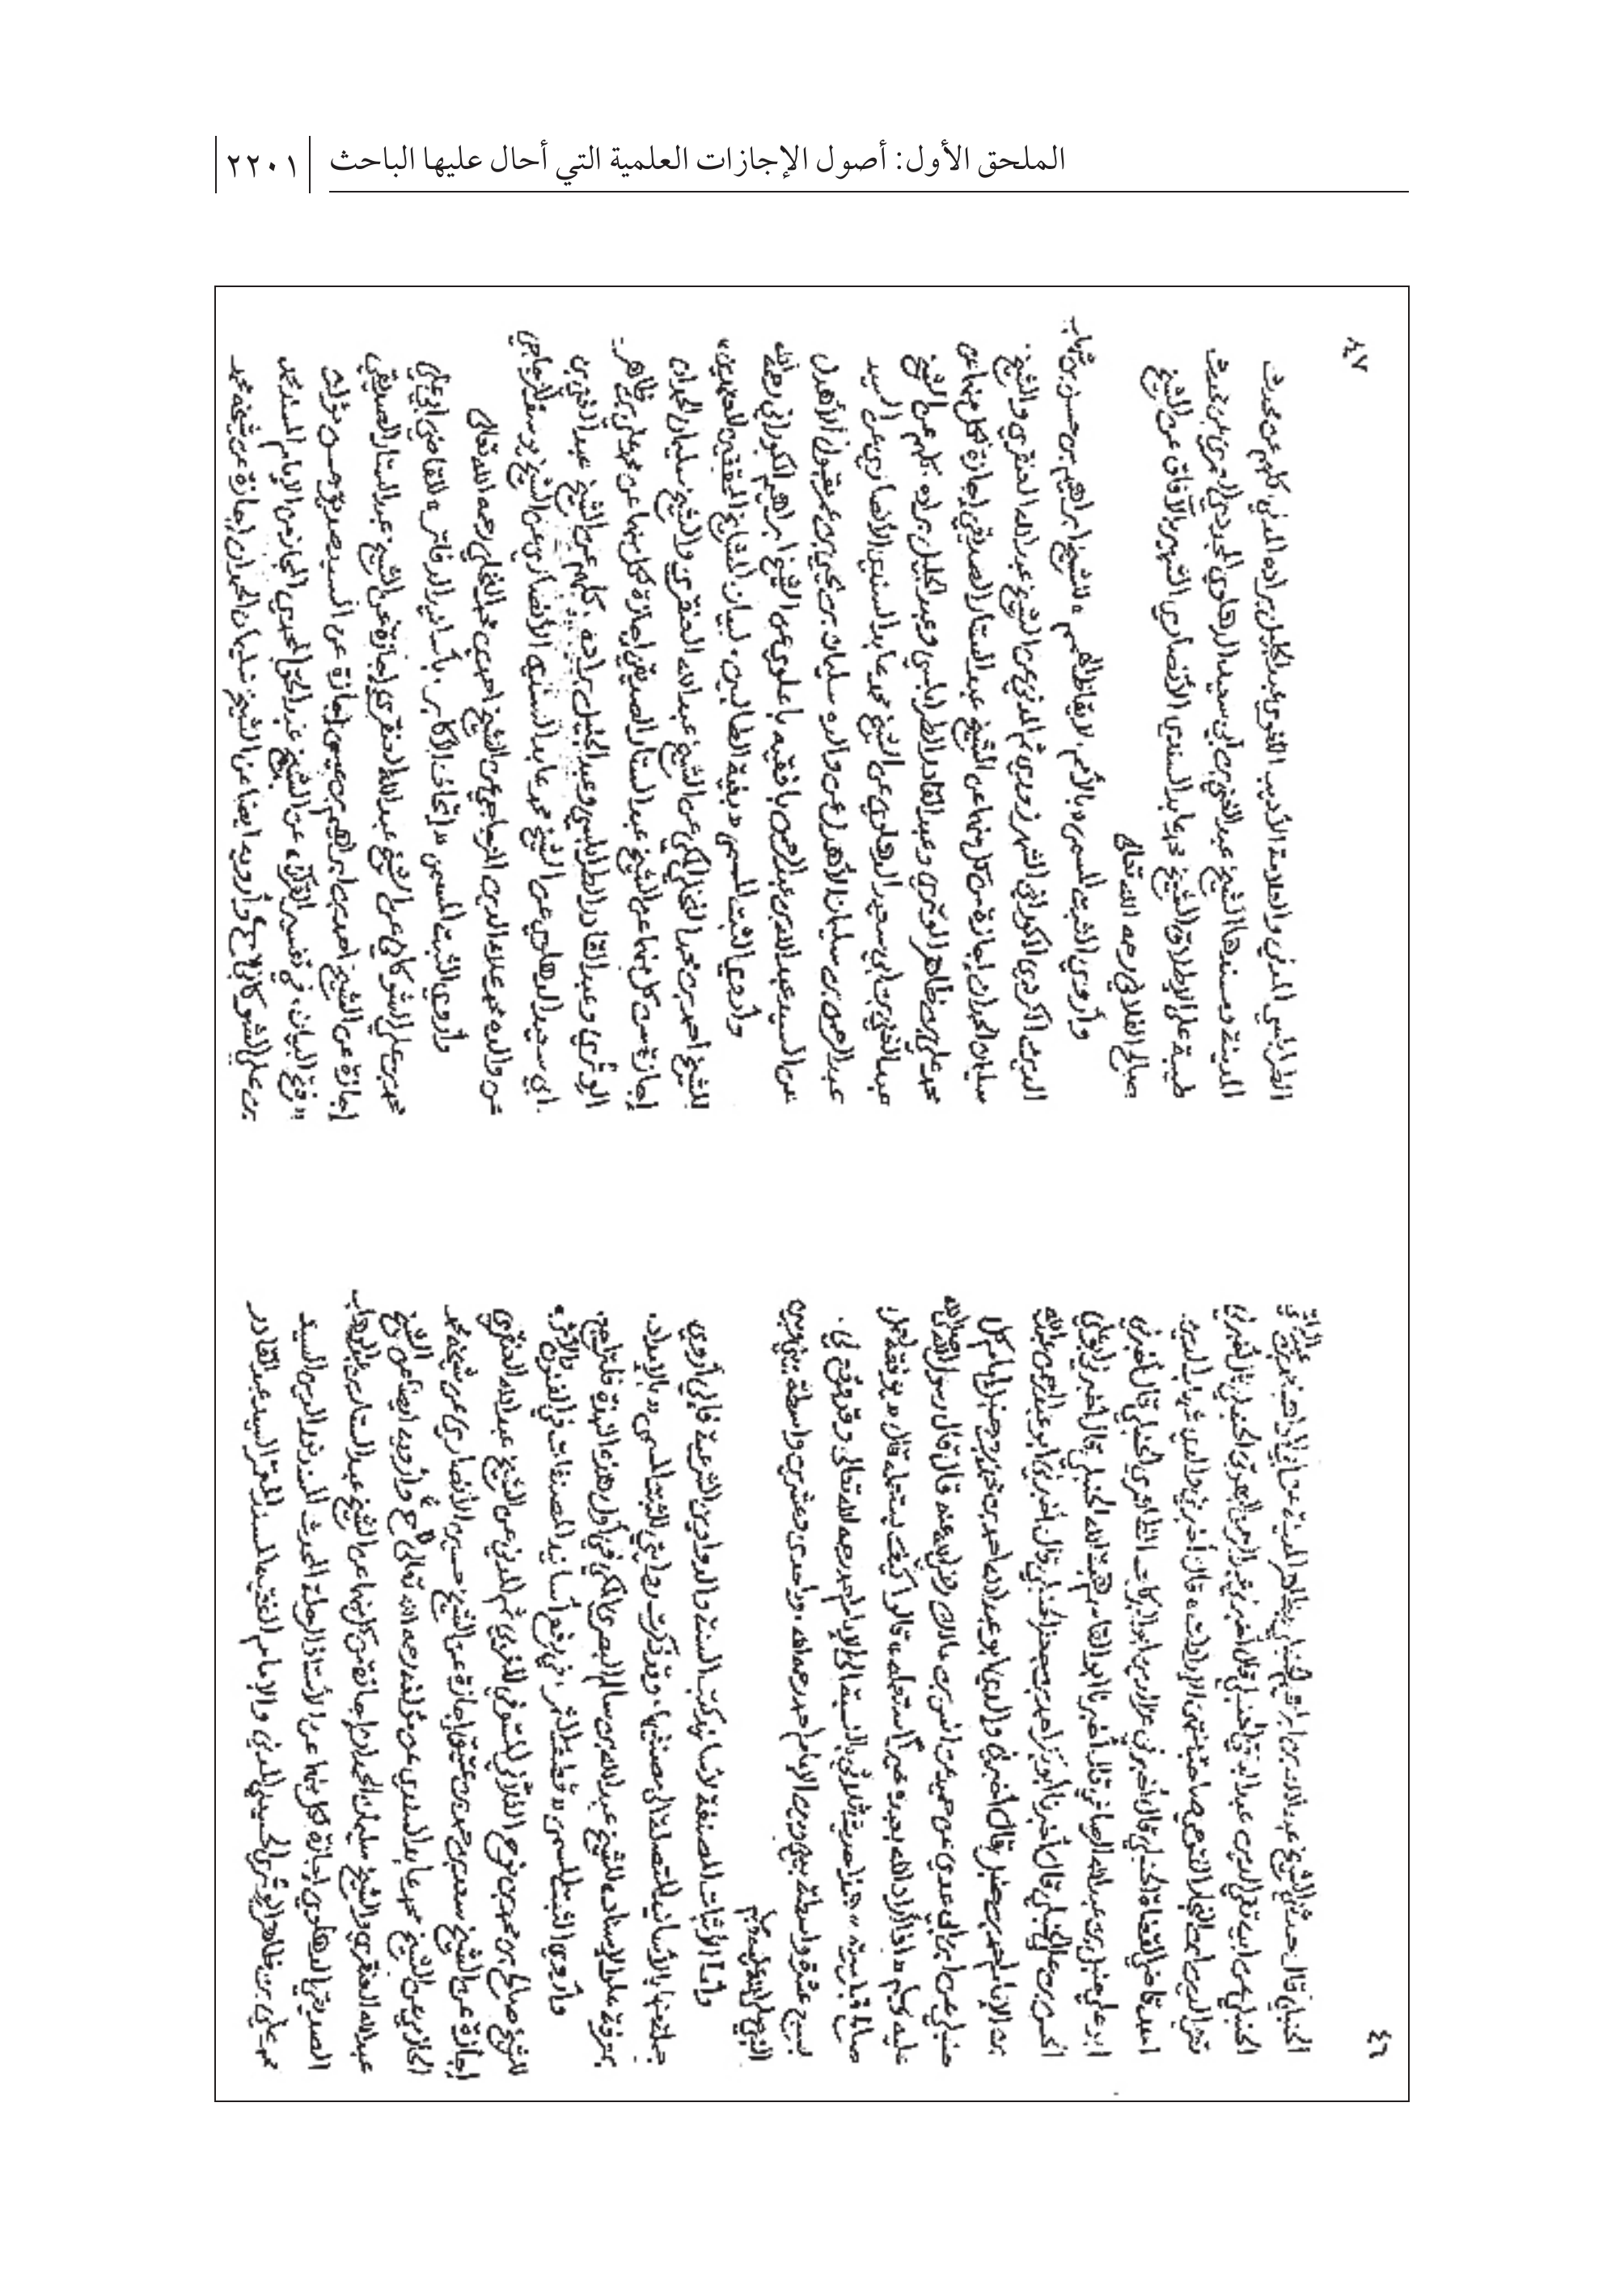 الملحق الأول: أصول الإجازات العلمية التي أحال عليها الباحث
٢٢٠١
٤٦
الحنبلي قال حدثني الشيخ عبدالله بن ابراهيم
الحنبلي عن تقي الدين عبدالباقي الحنبلي قال أخبرني عبدالرحمن البهوتي الحنبلي قال أخبرني
تقي الدين ابن النجار الفتوحي صاحب منتهى الارادات قال أخبرني والدي شهاب الدين
احمد قاضي القضاة الحنبلي قال أخبرني
ابو علي حنبل بن عبدالله الرصافي قال أخبرنا ابو القاسم هبة الله الحنبلي قال أخبرنا ابو علي
الحسن بن علي الحنبلي قال أخبرنا أبو بكر احمد بن جعفر الحنبلي قال أخبرني أبو عبدالرحمن عبدالله
بن الإمام احمد بن حنبل قال أخبرني والدي ابو عبدالله احمد بن محمد بن حنبل إمام كل
حنبلي عن ابن أبي عدي عن حميد عن انس بن مالك رضي الله عنه قال قال رسول الله صلى الله
عليه وسلم « إذا أراد الله بعبده خيرا استعمله » قالوا كيف يستعمله قال « يوفقه لعمل
صالح قبل موته » هذا حديث ثلاثي بالنسبة الى الإمام احمد رحمه الله تعالى وقد وقع لي
بسبع عشرة واسطة بيني وبين الإمام احمد رحمه الله، وإحدى وعشرين واسطة بيني وبين
النبي صلى الله عليه وسلم
وأما الأثبات المصنفة لأسانيد كتب السنة والدواوين الشرعية فإني أروي
جملة منها بالأسانيد المتصلة الى مصنفيها، وقد ذكرت روايتي للثبت المسمى « بالإمداد
بمعرفة علو الإسناد » للشيخ عبدالله بن سالم البصري المكي في أول هذه النبذة
وأروي الثبت المسمى « قطف الثمر، في رفع أسانيد المصنفات في الفنون والأثر »
للشيخ صالح بن محمد بن نوح الفلاني عن الشيخ عبدالله العنقري
إجازة عن الشيخ سعد بن حمد بن عتيق إجازة عن الشيخ حسين الأنصاري عن شيخه محمد
الحازمي عن الشيخ محمد عابد السندي عن مؤلفه رحمه الله تعالى ح وأرويه ايضا عن الشيخ
عبدالله العنقري والشيخ سليمان الحمدان إجازة من كل منهما عن الشيخ عبدالستار بن عبدالوهاب
الصديقي الدهلوي إجازة
محمد علي بن ظاهر الوتري الحسيني المدني والإمام الفقيه المسند المعمر السيد عبدالقادر
٤٧
الطرابلسي المدني والعلامة الأديب اللغوي عبدالجليل براده المدني كلهم عن محدث
المدينة ومسندها الشيخ عبدالغني بن أبي سعيد الدهلوي المجددي العمري عن محدث
طيبة على الإطلاق الشيخ محمد عابد السندي الأنصاري الشهير بالآفاق عن الشيخ
صالح الفلاني رحمه الله تعالى
وأروي الثبت المسمى « بالأمم، لإيقاظ الهمم » للشيخ ابراهيم بن حسن بن شهاب
الدين الكردي الكوراني الشهرزوري ثم المدني عن الشيخ عبدالله العنقري والشيخ
سليمان الحمدان إجازة من كل منهما عن الشيخ عبدالستار الصديقي إجازة
محمد علي بن ظاهر الوتري وعبدالقادر الطرابلسي وعبدالجليل براده كلهم عن الشيخ
عبدالغني بن ابي سعيد الدهلوي عن الشيخ محمد عابد السندي الأنصاري عن السيد
عبدالرحمن بن سليمان الأهدل عن والده سليمان بن يحيى بن عمر مقبول الأهدل
عن السيد عبدالله بن عبدالرحمن بافقيه باعلوي عن الشيخ ابراهيم الكوراني رحمه الله
وأروي الثبت المسمى « بغية الطالبين، لبيان المشايخ المحققين المعتمدين »
للشيخ احمد بن محمد النخلي المكي عن الشيخ عبدالله العنقري والشيخ سليمان الحمدان
إجازة من كل منهما عن الشيخ عبدالستار الصديقي إجازة كل منهما عن محمد علي بن ظاهر
الوتري وعبدالقادر الطرابلسي وعبدالجليل براده، كلهم عن الشيخ عبدالغني بن
ابي سعيد الدهلوي عن الشيخ محمد عابد السندي الأنصاري عن الشيخ يوسف المزجاجي
عن والده محمد علاء الدين المزجاجي عن الشيخ احمد بن محمد النخلي رحمه الله تعالى
وأروي الثبت المسمى « إتحاف الأكابر، بأسانيد الدفاتر » للقاضي
محمد بن علي الشوكاني عن الشيخ عبدالله العنقري إجازة عن الشيخ عبدالستار الصديقي
إجازة عن الشيخ احمد بن ابراهيم بن عيسى إجازة عن السيد صديق حسن مؤلف
« فتح البيان، في تفسير القرآن » عن الشيخ عبدالحق المحمدي المجاز من الإمام المسند محمد
بن علي الشوكاني ح وأرويه ايضا عن الشيخ سليمان الحمدان إجازة عن شيخه محمد